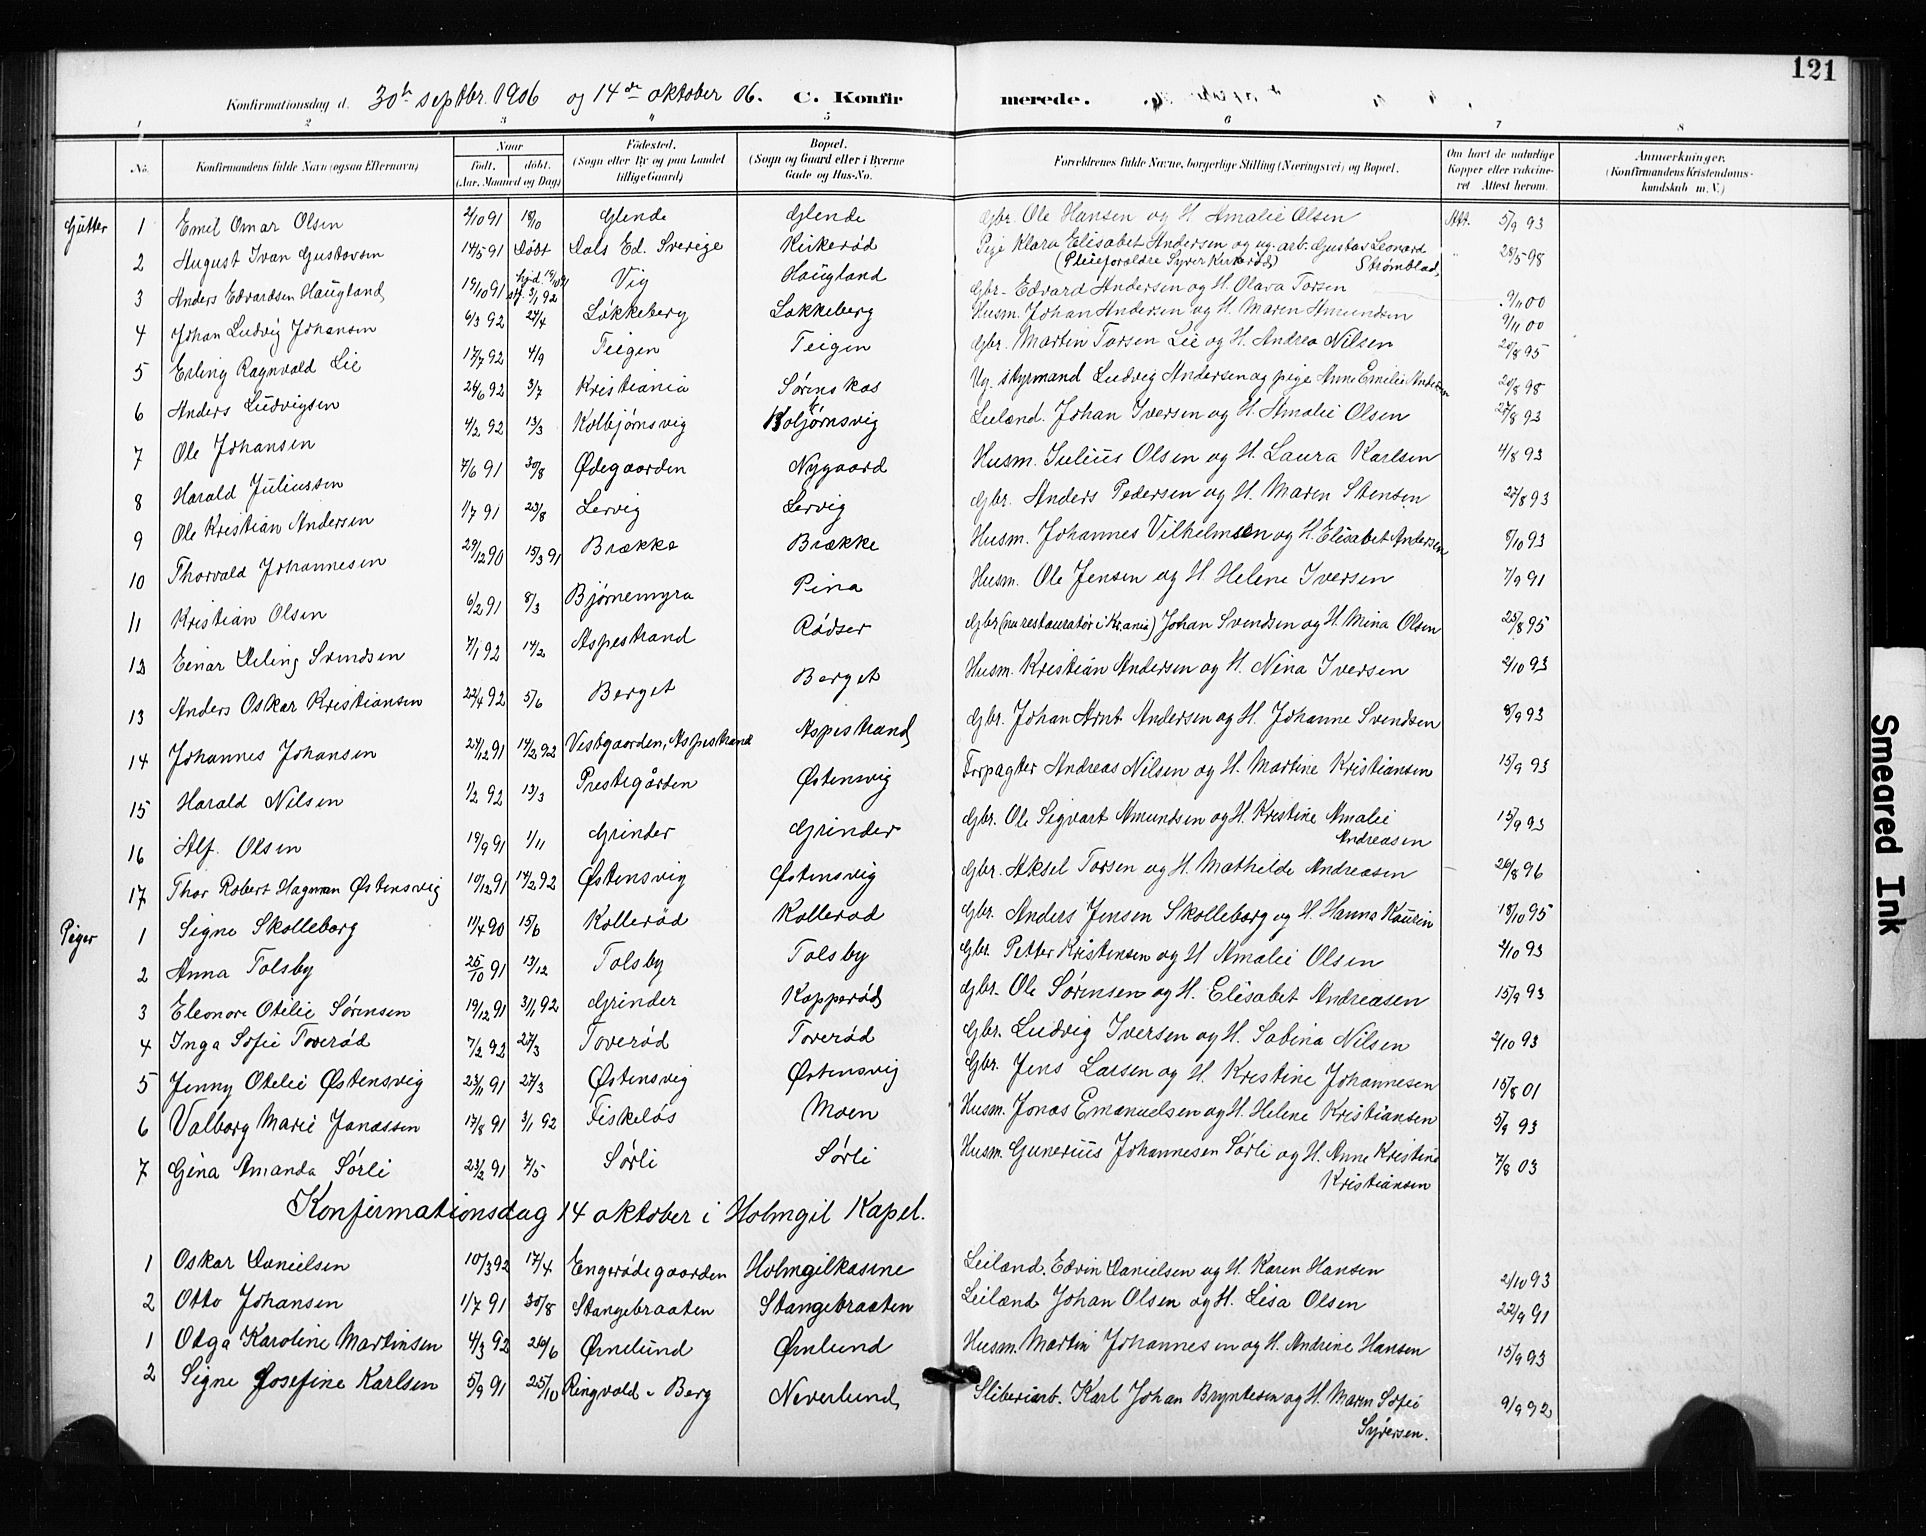 121
Konfirmationsdag d. 30te septbr. 1906 og 14de oktober 06. C. Konfirmerede.
1 2 3 4 5 6 7 8
No. Konfirmandens fulde Navn (ogsaa Efternavn) Naar født. døbt. (Aar, Maaned og Dag) Fødested. (Sogn eller By og paa Landet tillige Gaard) Bopæl. (Sogn og Gaard eller i Byerne Gade og Hus-No. Forældrenes fulde Navne, borgerlige Stilling (Næringsvei) og Bopæl. Om havt de naturlige Kopper eller vaccineret Attest herom. Anmærkninger. (Konfirmandens Kristendomskundskab m. V.)
Gutter 1 Emil Omar Olsen 2/10 91 18/10 Glende Glende Gbr. Ole Hansen og H. Amalie Olsen Att. 5/9 93
2 August Ivan Gustavsen 14/5 91 Døbt Dals Ed. Sverige Kirkerød Pige Klara Elisabet Andersen og ug. arb. Gustav Leonard Strømblad (Pleieforældre Syver Kirkerød) " 28/5 98
3 Anders Edvardsen Haugland 19/10 91 hjd. stf. 3/1 92 Vig Haugland Gbr. Edvard Andersen og H. Olava Torsen 9/11 00
4 Johan Ludvig Johansen 6/3 92 24/4 Løkkeberg Løkkeberg Husm. Johan Andersen og H. Maren Amundsen 9/11 00
5 Erling Ragnvald Lie 17/7 92 4/9 Teigen Teigen Gbr. Martin Torsen Lie og H. Andrea Nilsen 20/8 95
6 Anders Ludvigsen 24/6 92 3/7 Kristiania Sørenskas Ug. styrmand Ludvig Andersen og pige Anne Emelie Andersen 20/8 98
7 Ole Johansen 4/2 92 13/3 Kolbjørnsvig Kolbjørnsvig Leilænd. Johan Iversen og H. Amalie Olsen 27/8 93
8 Harald Juliussen 7/6 91 30/8 Ødegaarden Nygaard Husm. Julius Olsen og H. Laura Karlsen 4/8 93
9 Ole Kristian Andersen 1/7 91 23/8 Lervig Lervig Gbr. Anders Pedersen og H. Maren Stensen 27/8 93
10 Thorvald Johannesen 29/12 90 15/3 91 Brække Brække Husm. Johannes Vilhelmsen og H. Elisabet Andersen 8/10 93
11 Kristian Olsen 6/2 91 8/3 Bjørnemyra Pina Husm. Ole Jensen og H. Helene Iversen 7/9 91
12 Einar Erling Svendsen 7/1 92 14/2 Aspestrand Rødser Gbr (nu restauratør i Kr.ania) Johan Svendsen og H. Mina Olsen 25/8 95
13 Anders Oskar Kristiansen 22/4 92 5/6 Berget Berget Husm. Kristian Andersen og H. Nina Iversen 2/10 93
14 Johannes Johansen 24/12 91 14/2 92 Vestgaarden, Aspestrand Aspestrand Gbr. Johan Arnt Andersen og H. Johanne Svendsen 8/9 93
15 Harald Nilsen 1/2 92 13/3 Prestegården Østensvig Forpagter Andreas Nilsen og H. Martine Kristiansen 15/9 93
16 Alf Olsen 19/9 91 1/11 Grinder Grinder Gbr. Ole Sigvart Amundsen og H. Kristine Amalie Andreasen 15/9 93
17 Thor Robert Hagman Østensvig 10/12 91 14/2 92 Østensvig Østensvig Gbr. Aksel Torsen og H. Mathilde Andreasen 26/8 96
Piger 1 Signe Skolleborg 11/4 90 15/6 Kollerød Kollerød Gbr. Anders Jensen Skolleborg og H. Hanna Kaurin 18/10 95
2 Anna Tolsby 25/10 91 13/12 Tolsby Tolsby Gbr. Petter Kristensen og H Amalie Olsen 2/10 93
3 Eleonore Otilie Sørensen 19/12 91 31/1 92 Grinder Kopperød Gbr. Ole Sørensen og H. Elisabet Andreasen 15/9 93
4 Inga Sofie Toverød 7/2 92 27/3 Toverød Toverød Gbr. Ludvig Iversen og H. Sabina Nilsen 2/10 93
5 Jenny Otelie Østensvig 23/11 91 27/3 Østensvig Østensvig Gbr. Jens Larsen og H. Kristine Johannesen 15/8 01
6 Valborg Marie Janassen 17/8 91 3/1 92 Fiskeløs Moen Husm. Jonas Emanuelsen og H. Helene Kristiansen 5/9 93
7 Gina Amanda Sørli 23/2 91 7/5 Sørli Sørli Husm. Gunerius Johannesen Sørli og H. Anne Kristine Kristiansen 7/8 03
Konfirmationsdag 14 oktober i Holmgil Kapel.
1 Oskar Danielsen 10/3 92 17/4 Engerødegaarden Holmgilkasine Leilænd. Edvin Danielsen og H. Karen Hansen 2/10 93
2 Otto Johansen 1/7 91 30/8 Stangebraaten Stangebraaten Leilænd Johan Olsen og H. Lisa Olsen 22/9 91
1 Olga Karoline Martinsen 4/3 92 26/6 Ørnelund Ørnlund Husm. Martin Johannesen og H. Andrine Hansen 15/9 93
2 Signe Josefine Karlsen 5/9 91 25/10 Ringvold i Berg Neverlund Sliberiarb. Karl Johan Bryntesen og H. Maren Sofie Syversen. 9/9 92
Smeared Ink